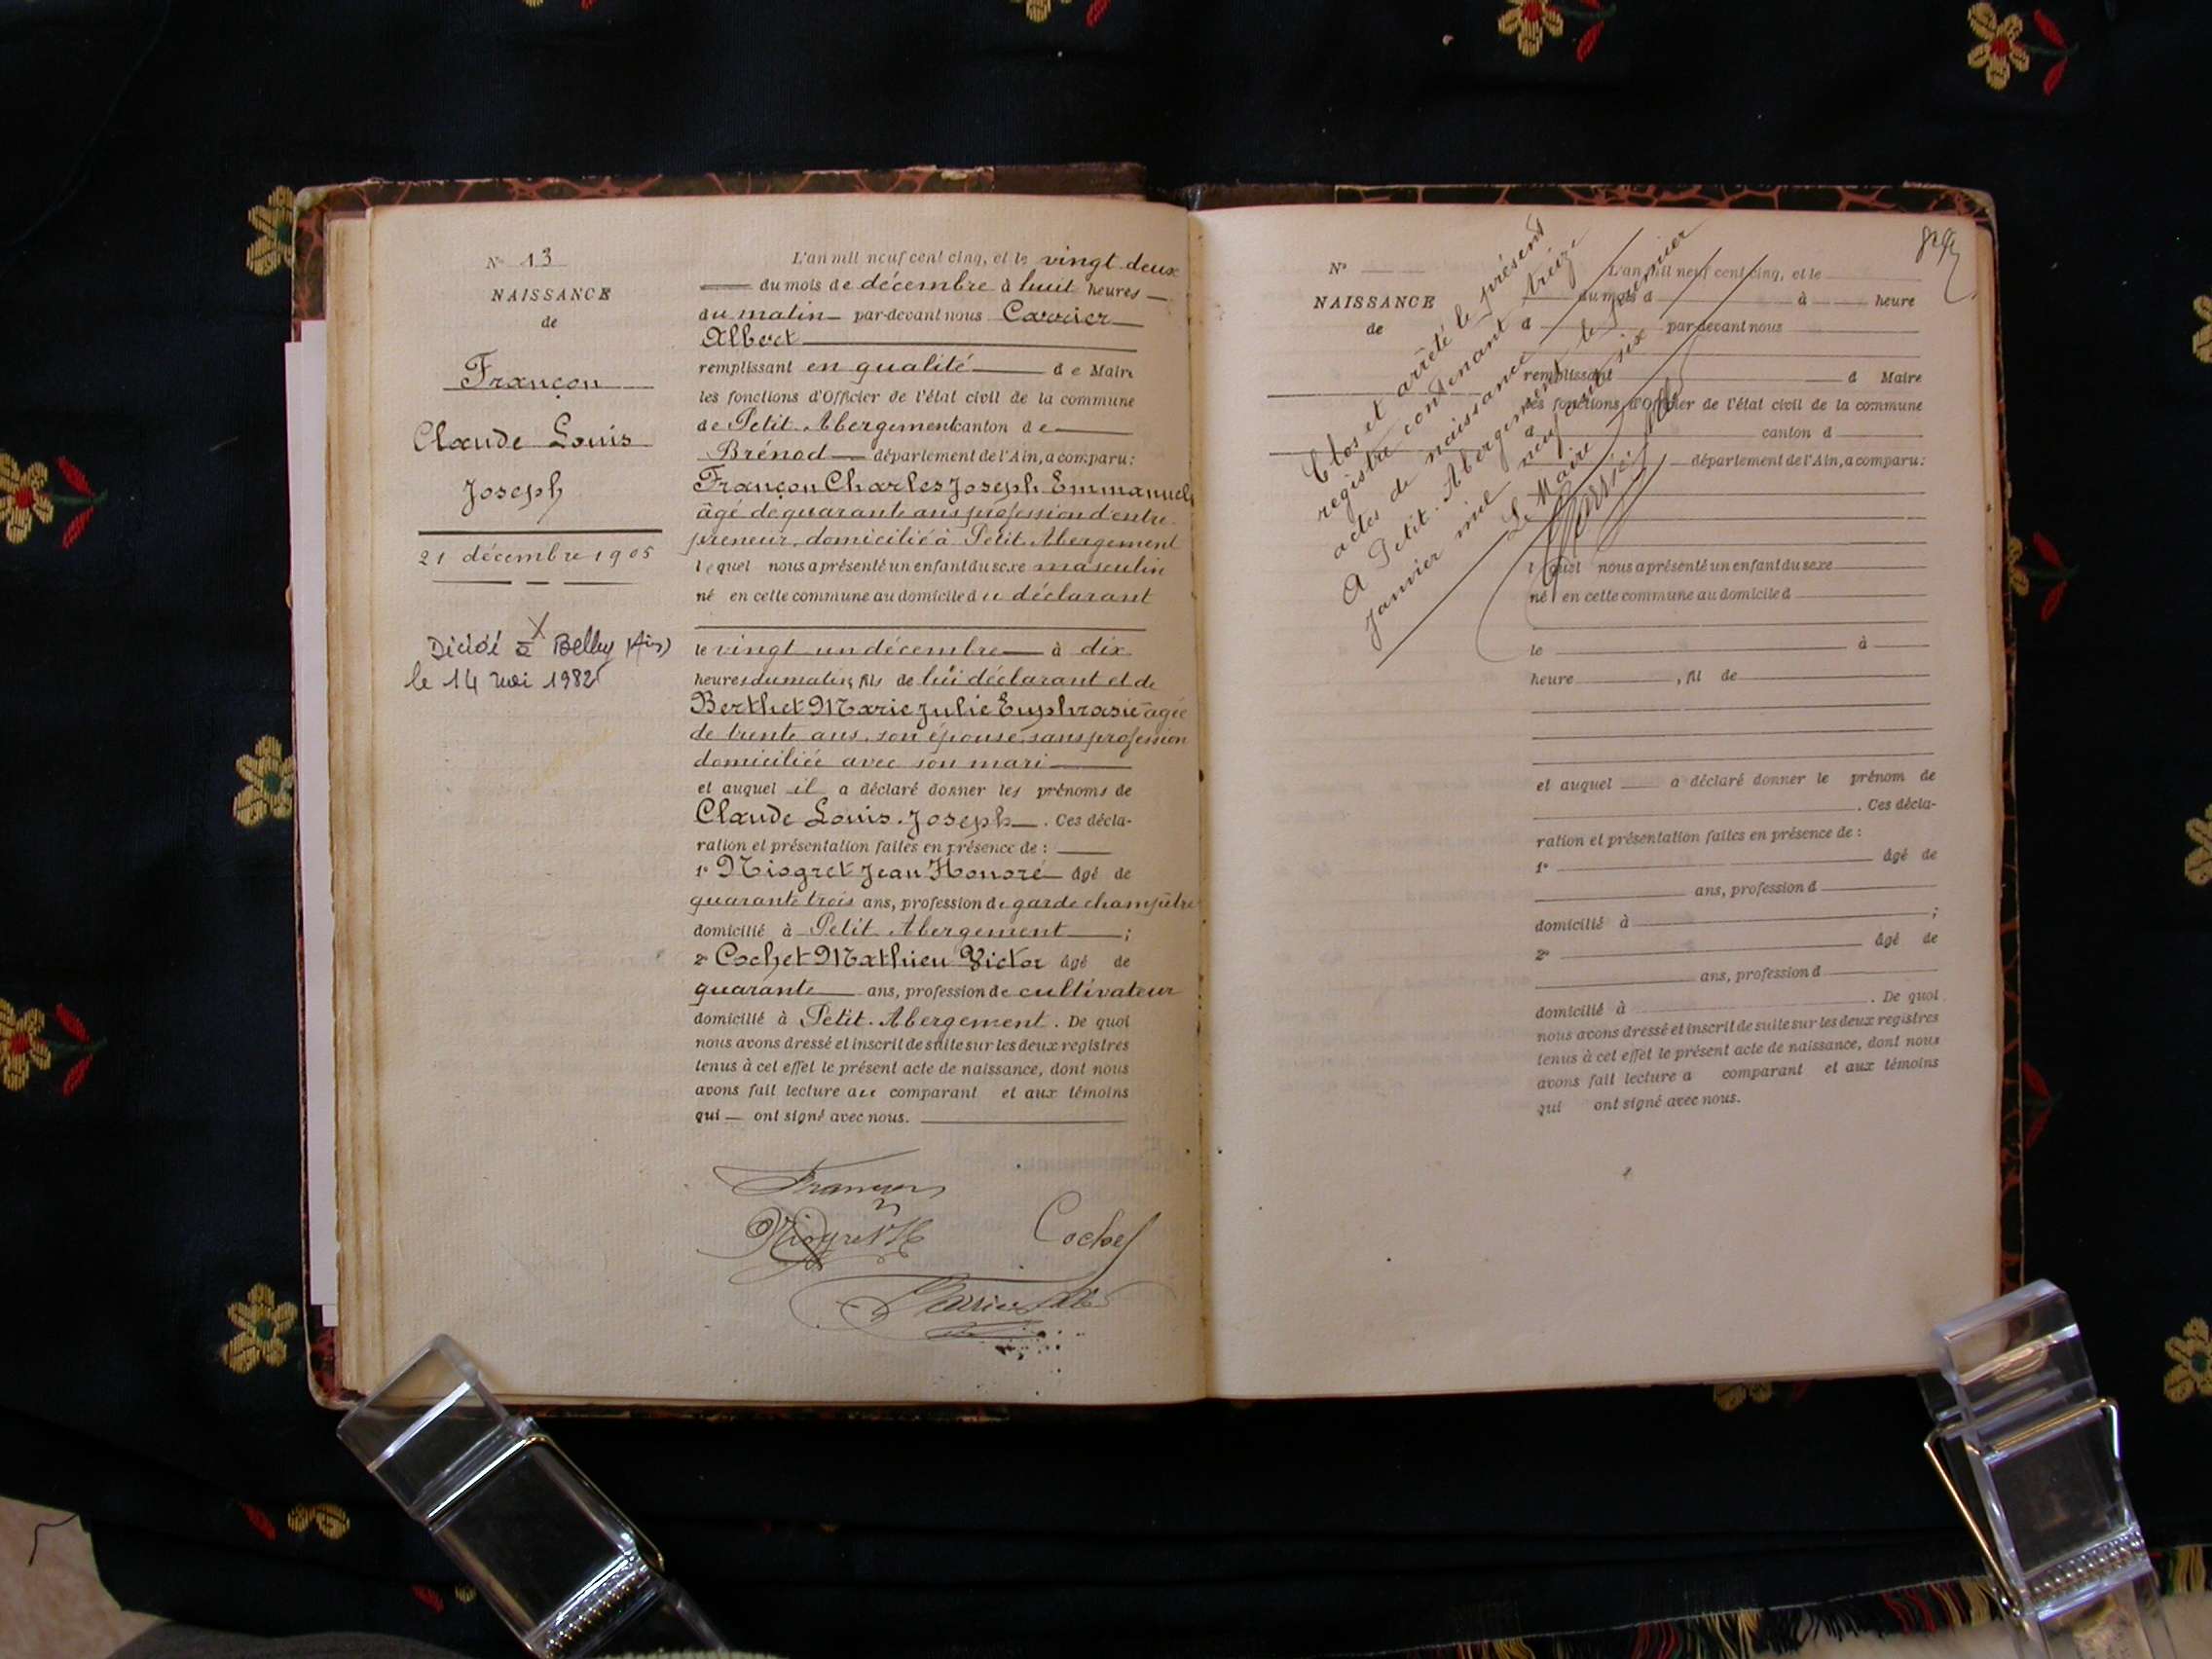 N° 13
NAISSANCE
de
Françon
Claude Louis
Joseph
21 décembre 1905
Décédé à Belley (Ain)
le 14 mai 1982
L'an mil neuf cent cinq, et le vingt deux
du mois de décembre à huit heures
du matin par-devant nous Carrier
Albert
remplissant en qualité de Maire
les fonctions d'Officier de l'état civil de la commune
de Petit Abergement canton de
Brénod département de l'Ain, a comparu :
Françon Charles Joseph Emmanuel
âgé de quarante ans profession d'entre-
preneur, domicilié à Petit Abergement
lequel nous a présenté un enfant du sexe masculin
né en cette commune au domicile du déclarant
le vingt un décembre à dix
heures du matin, fils de lui déclarant et de
Berthet Marie Julie Euphrasie âgée
de trente ans, son épouse, sans profession
domiciliée avec son mari
et auquel il a déclaré donner les prénoms de
Claude Louis Joseph. Ces décla-
ration et présentation faites en présence de :
1° Niogret Jean Honoré âgé de
quarante trois ans, profession de garde champêtre
domicilié à Petit Abergement ;
2° Cochet Mathieu Victor âgé de
quarante ans, profession de cultivateur
domicilié à Petit-Abergement. De quoi
nous avons dressé et inscrit de suite sur les deux registres
tenus à cet effet le présent acte de naissance, dont nous
avons fait lecture au comparant et aux témoins
qui ont signé avec nous.
Françon
Niogret H
Cochet
Carrier Alb
N°
NAISSANCE
de
Clos et arrêté le présent
registre contenant treize
actes de naissance
A Petit-Abergement le premier
janvier mil neuf cent six
Le Maire
Carrier Alb
L'an mil neuf cent cinq, et le
du mois d à heure
d par-devant nous
remplissant d Maire
les fonctions d'Officier de l'état civil de la commune
d canton d
département de l'Ain, a comparu :
l quel nous a présenté un enfant du sexe
né en cette commune au domicile d
le à
heure , fil de
et auquel a déclaré donner le prénom de
. Ces décla-
ration et présentation faites en présence de :
1° âgé de
ans, profession d
domicilié à ;
2° âgé de
ans, profession d
domicilié à . De quoi
nous avons dressé et inscrit de suite sur les deux registres
tenus à cet effet le présent acte de naissance, dont nous
avons fait lecture a comparant et aux témoins
qui ont signé avec nous.